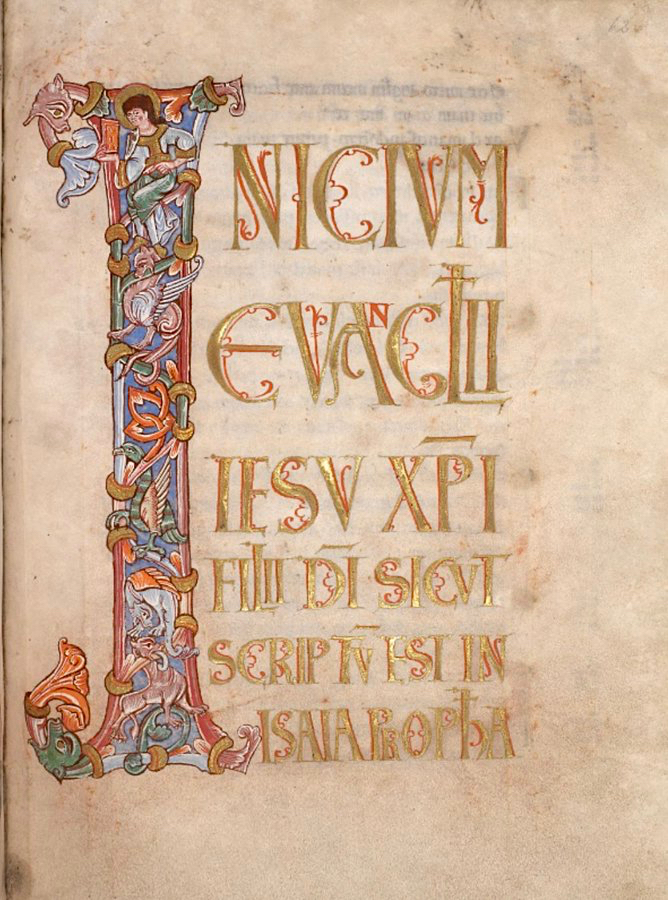 62
INICIVM
EVANGŁII
IESV XP̄I
FILII D̄I SICVT
SCRIPTV̄ EST IN
ISAIA PROPH̄A